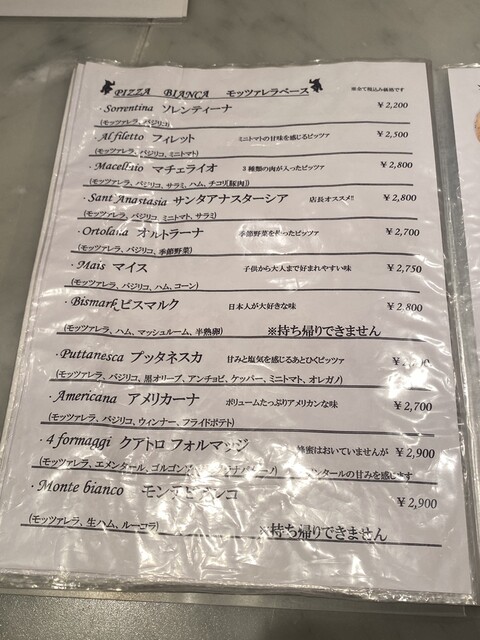 PIZZA BIANCA モッツァレラベース ※全て税込み価格です
・Sorrentina ソレンティーナ ￥2,200
(モッツァレラ、バジリコ)
Al filetto フィレット ミニトマトの甘味を感じるピッツァ ￥2,500
(モッツァレラ、バジリコ、ミニトマト)
・Macellaio マチェライオ 3種類の肉が入ったピッツァ ￥2,800
(モッツァレラ、バジリコ、サラミ、ハム、チコリ[豚肉])
Sant Anastasia サンタアナスターシア 店長オススメ!! ￥2,800
(モッツァレラ、バジリコ、ミニトマト、サラミ)
・Ortolana オルトラーナ 季節野菜を使ったピッツァ ￥2,700
(モッツァレラ、バジリコ、季節野菜)
・Mais マイス 子供から大人まで好まれやすい味 ￥2,750
(モッツァレラ、バジリコ、ハム、コーン)
・Bismark ビスマルク 日本人が大好きな味 ￥2,800
(モッツァレラ、ハム、マッシュルーム、半熟卵) ※持ち帰りできません
・Puttanesca プッタネスカ 甘みと塩気を感じるあとひくピッツァ
(モッツァレラ、バジリコ、黒オリーブ、アンチョビ、ケッパー、ミニトマト、オレガノ)
・Americana アメリカーナ ボリュームたっぷりアメリカンな味 ￥2,700
(モッツァレラ、バジリコ、ウィンナー、フライドポテト)
・4 formaggi クアトロ フォルマッジ 蜂蜜はおいていませんが ￥2,900
(モッツァレラ、エメンタール、ゴルゴンゾ ンタールの甘みを感じます
・Monte bianco モンテビアンコ ￥2,900
(モッツァレラ、生ハム、ルーコラ) ※持ち帰りできません